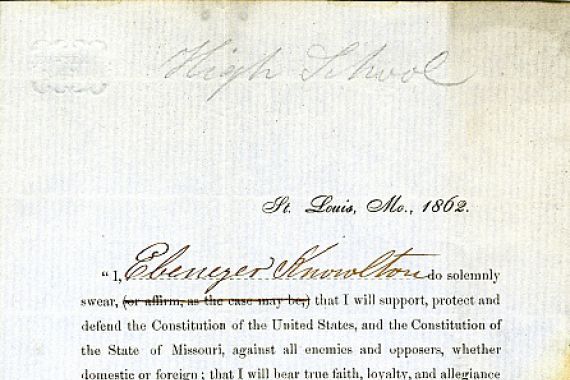 High School
St. Louis, Mo., 1862.
"I, Ebenezer Knowlton do solemnly
swear, (or affirm, as the case may be,) that I will support, protect and
defend the Constitution of the United States, and the Constitution of
the State of Missouri, against all enemies and opposers, whether
domestic or foreign; that I will bear true faith, loyalty, and allegiance